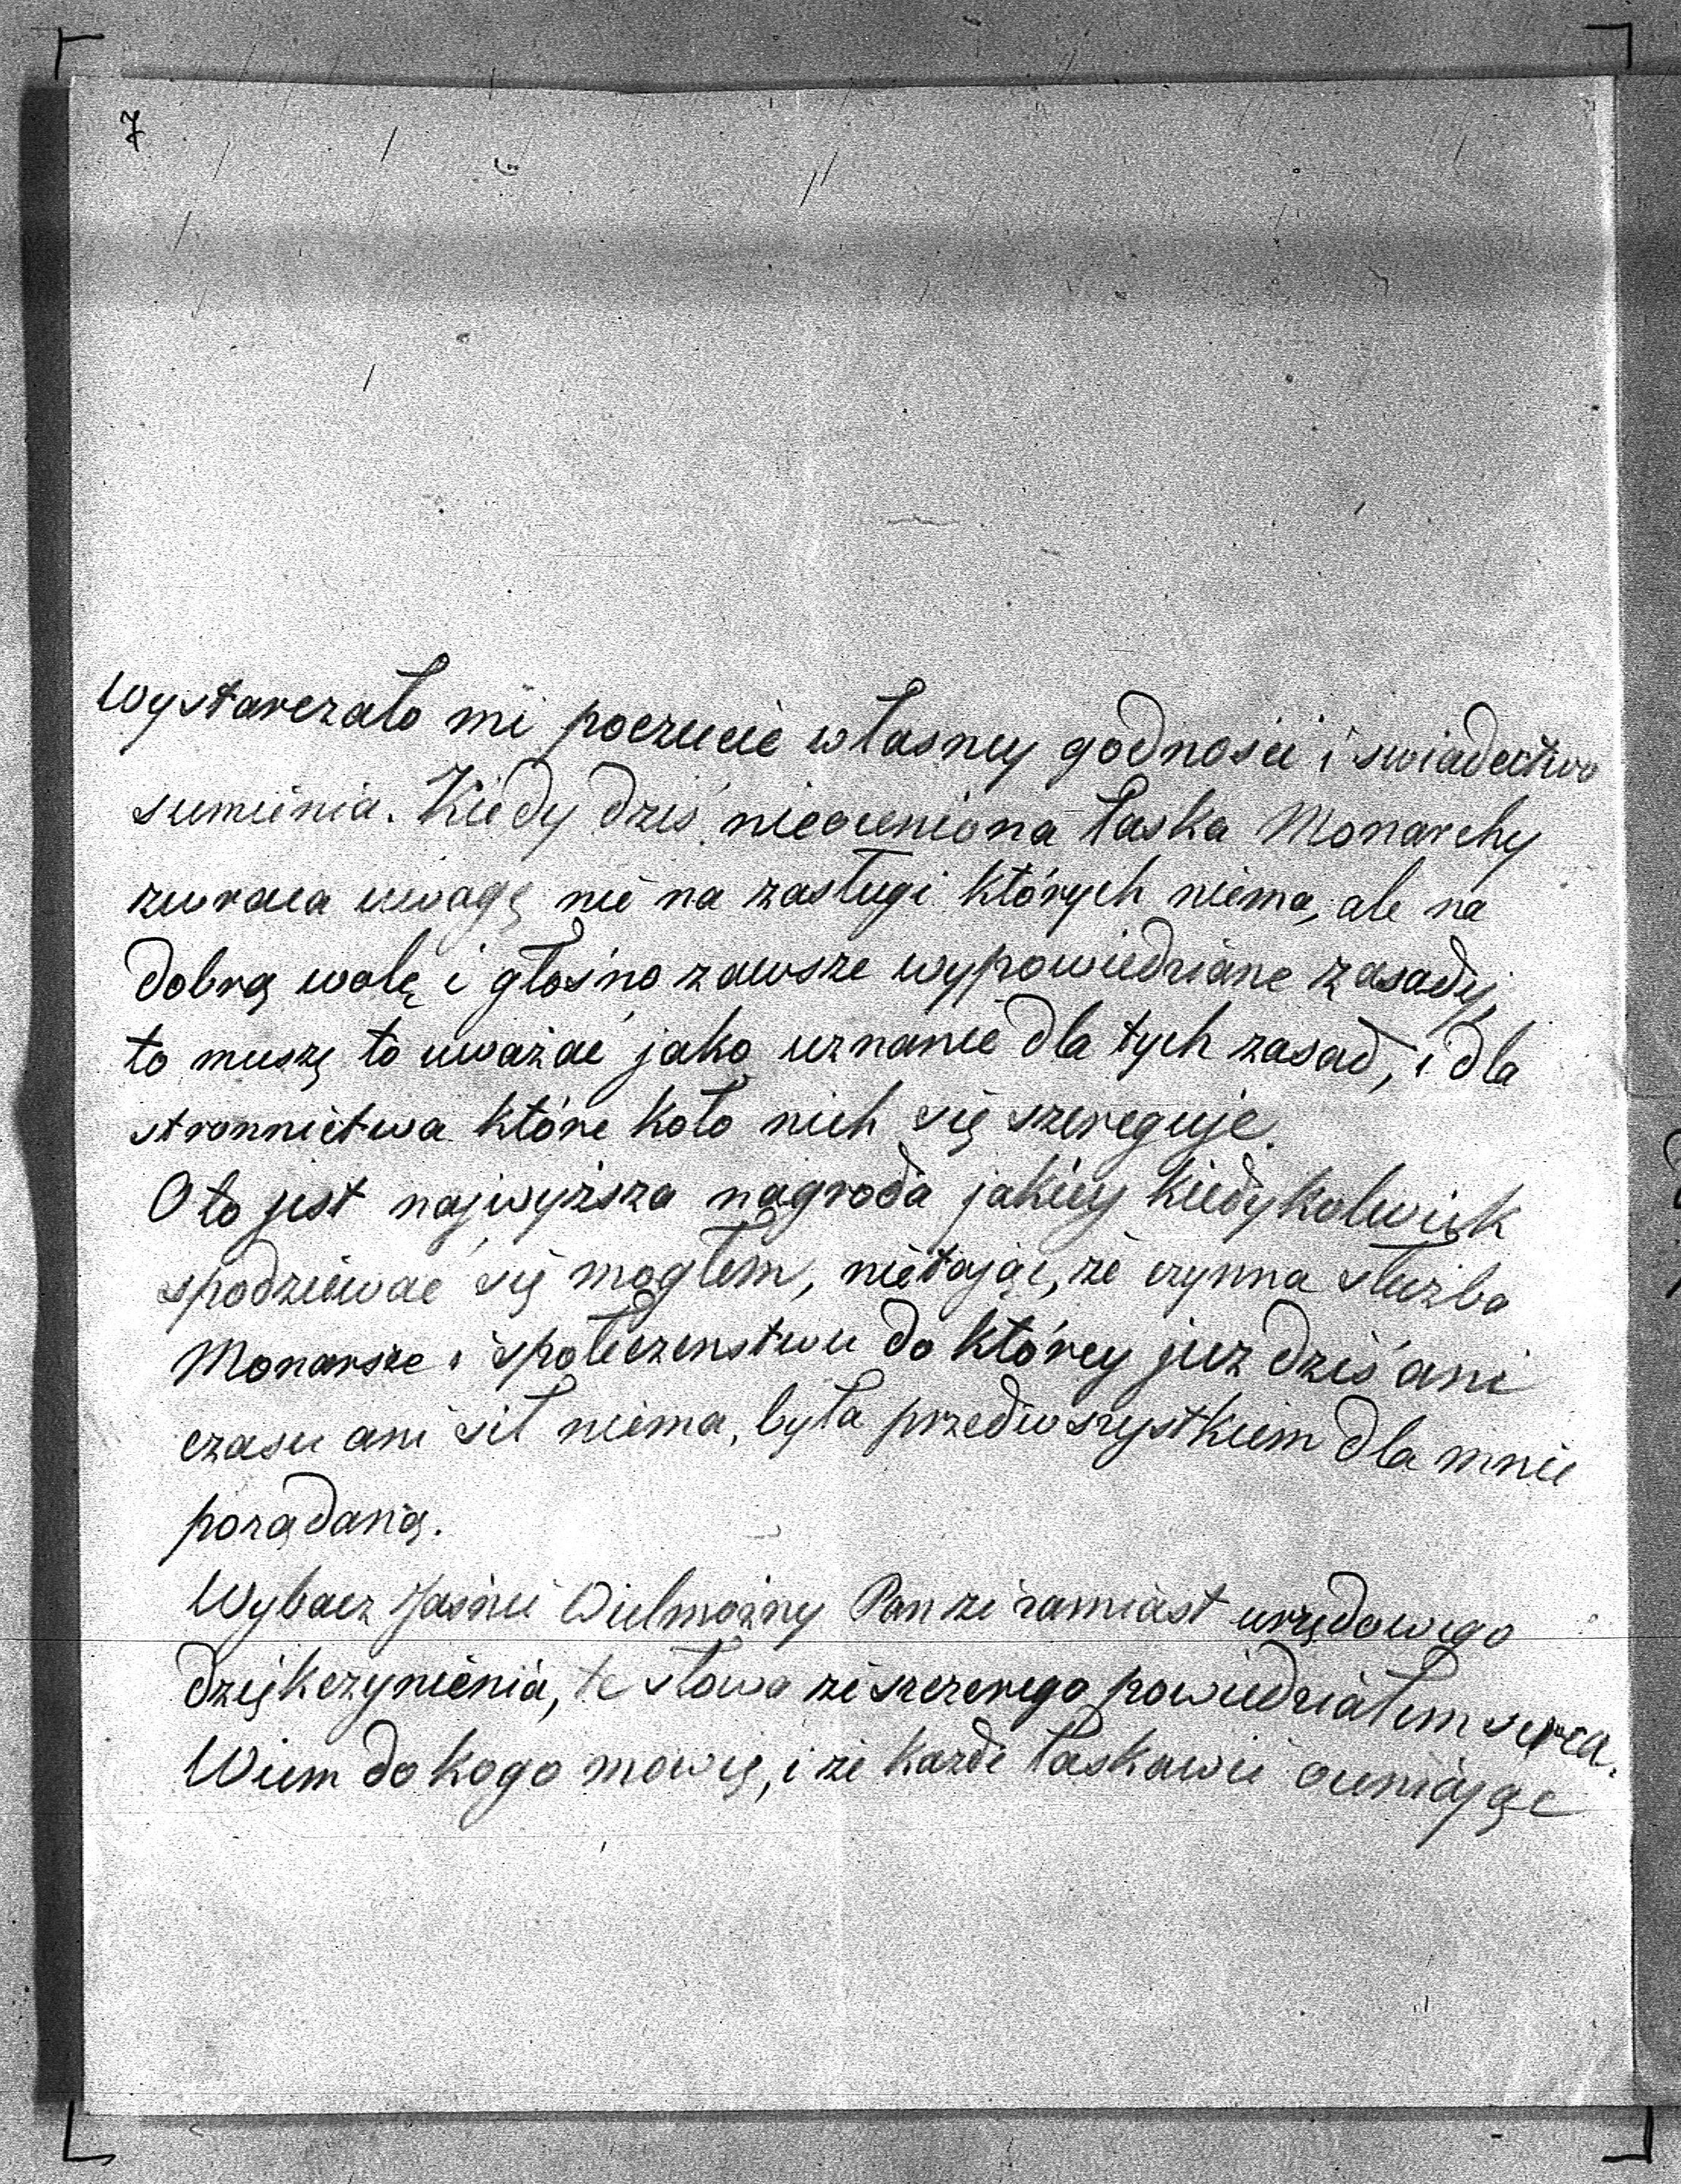 7
Wystarczało mi poczucie własney godności i swiadectwo
sumienia. Kiedy dziś nieoceniona łaska Monarchy
zwraca uwagę nie na zasługi których niema, ale na
dobrą wolę i głośno zawsze wypowiedziane zasady,
to muszę to uważać jako uznanie dla tych zasad, i dla
stronnictwa które koło nich się szereguje.
Oto jest najwyższa nagroda jakiey kiedykolwiek
spodziewać się mogłem, nietając, że czynna służba
Monarsze i społeczenstwu do którey już dziś ani
czasu ani sił niema, była przedewszystkiem dla mnie
porądaną.
Wybacz Jaśnie Wielmożny Pan że zamiast urzędowego
dziękczynienia, te słowa ze szczerego powiedziałem serca.
Wiem do kogo mowię, i że każde łaskawie oceniając